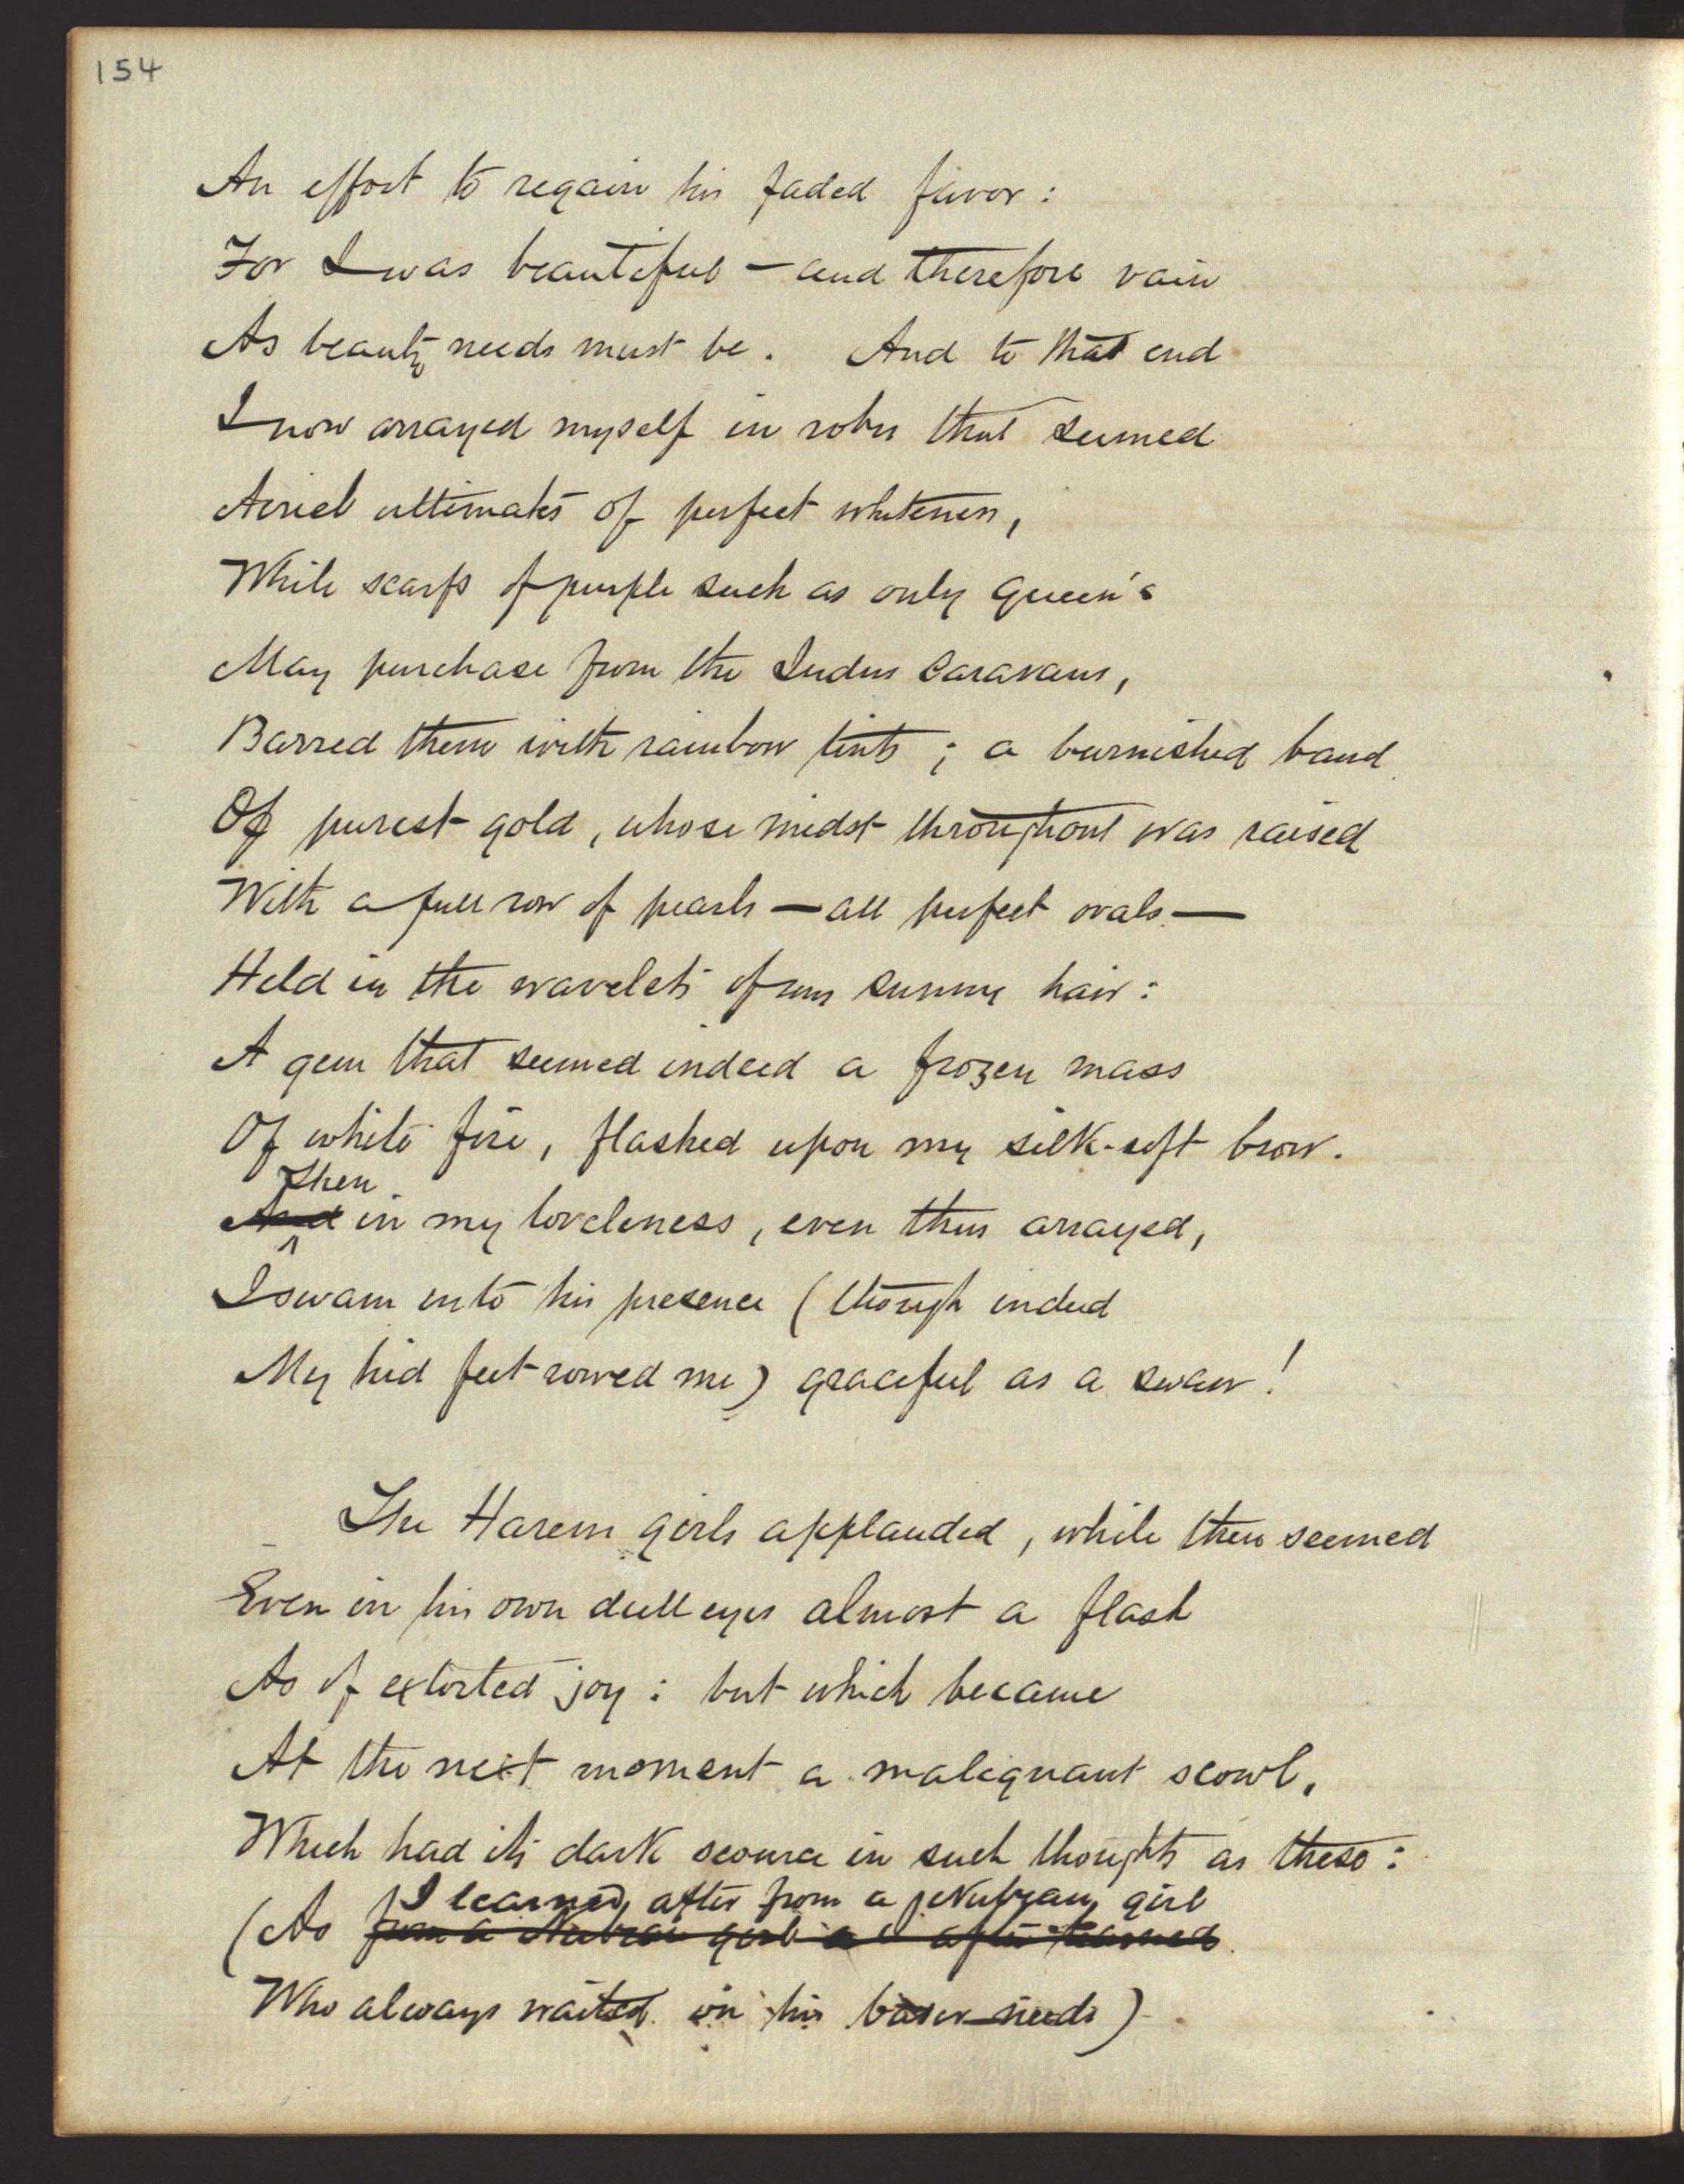 154
An effort to regain his faded favor :
For I was beautiful — and therefore vain
As beauty needs must be . And to that end
I now arrayed myself in robes that seemed
Aeriel ultimates of perfect whiteness ,
While scarfs of purple such as only Queen's
May purchase from the Indus Caravans ,
Barred them with rainbow tints ; a burnished band
Of purest gold , whose midst throughout was raised
With a full row of pearls — all perfect ovals —
Held in the wavelets of my sunny hair :
A gem that seemed indeed a frozen mass
Of white fire , flashed upon my silk-soft brow .
Then
And in my loveliness , even thus arrayed ,
I swam into his presence ( though indeed
My hid feet rowed me ) graceful as a swan !
The Harem girls applauded , while there seemed
Even in his own dull eyes almost a flash
As of extorted joy : but which became
At the next moment a malignant scowl .
Which had its dark source in such thoughts as these :
I learned, after from a Nubian girl
( As from a Nubian girl I after learned
Who always waited on his baser needs )